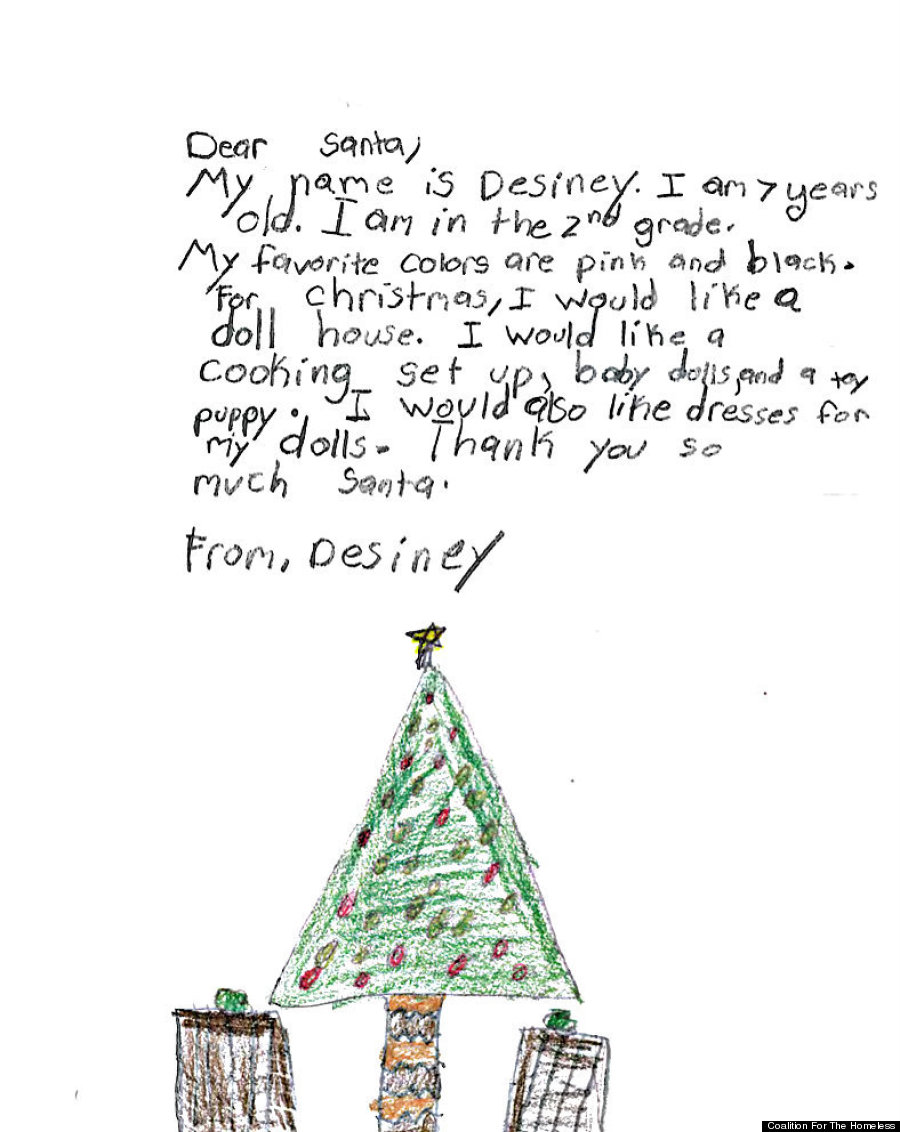 Dear Santa,
My name is Desiney. I am 7 years
old. I am in the 2nd grade.
My favorite colors are pink and black.
For christmas, I would like a
doll house. I would like a
cooking set up, baby dolls, and a toy
puppy. I would also like dresses for
my dolls. Thank you so
much Santa.
From, Desiney
Coalition For The Homeless